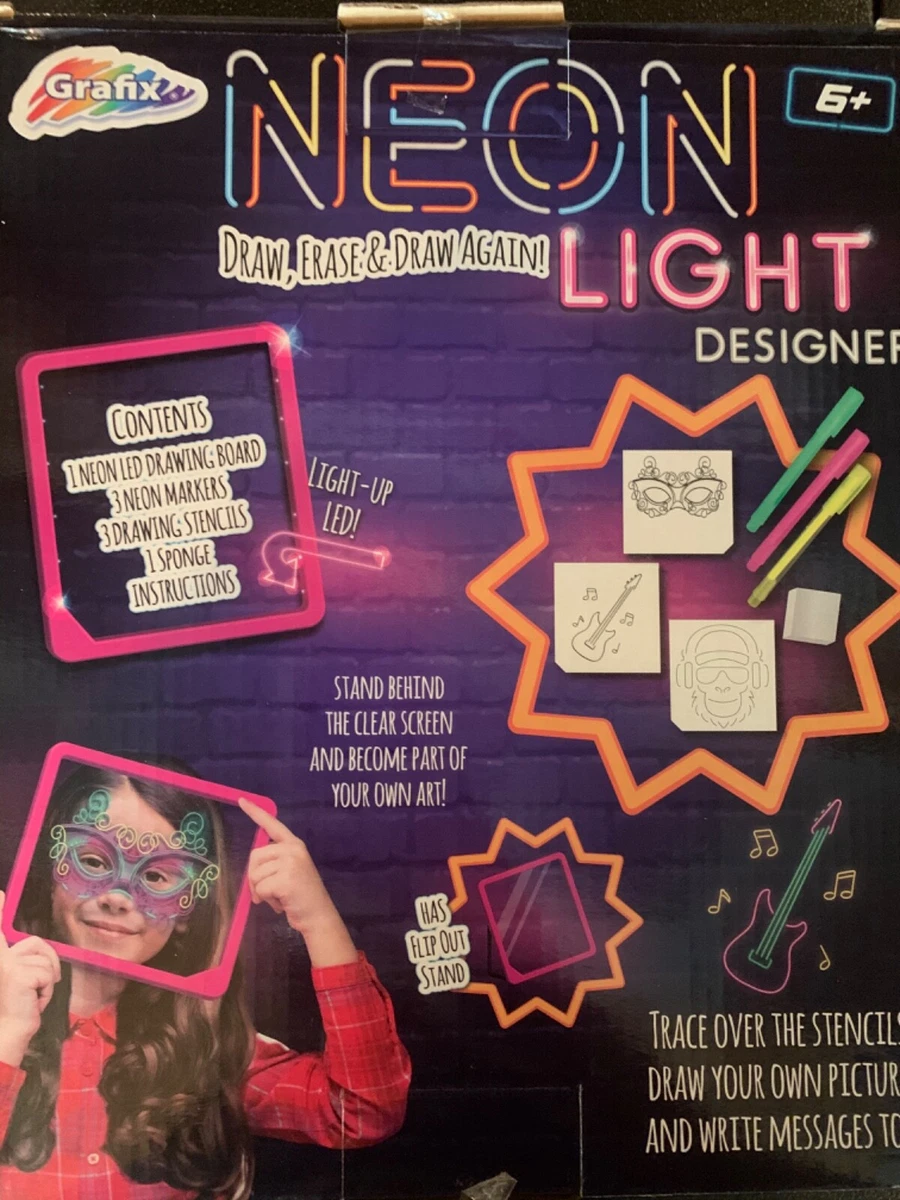 Grafix
NEON
6+
DRAW, ERASE & DRAW AGAIN!
LIGHT
DESIGNER
CONTENTS
1 NEON LED DRAWING BOARD
3 NEON MARKERS
3 DRAWING STENCILS
1 SPONGE
INSTRUCTIONS
LIGHT-UP
LED!
STAND BEHIND
THE CLEAR SCREEN
AND BECOME PART OF
YOUR OWN ART!
HAS
FLIP OUT
STAND
TRACE OVER THE STENCILS
DRAW YOUR OWN PICTUR
AND WRITE MESSAGES TO